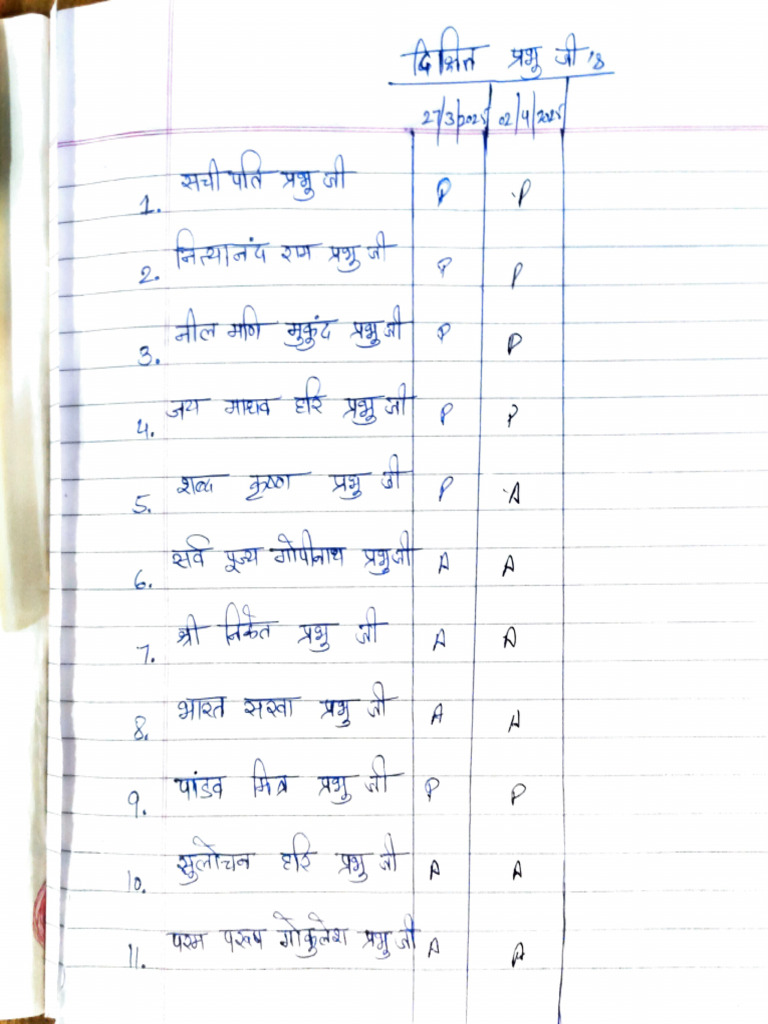 दिक्षित प्रभु जी's
27/3/2025 02/4/2025
1. सची पति प्रभु जी P P
2. नित्यानंद राम प्रभु जी P P
3. नील मणि मुकुंद प्रभु जी P P
4. जय माधव हरि प्रभु जी P P
5. शब्द कृष्ण प्रभु जी P A
6. सर्व पूज्य गोपीनाथ प्रभु जी A A
7. श्री निकेत प्रभु जी A A
8. भारत सखा प्रभु जी A A
9. पांडव मित्र प्रभु जी P P
10. सुलोचन हरि प्रभु जी A A
11. परम परुष गोकुलेश प्रभु जी A A